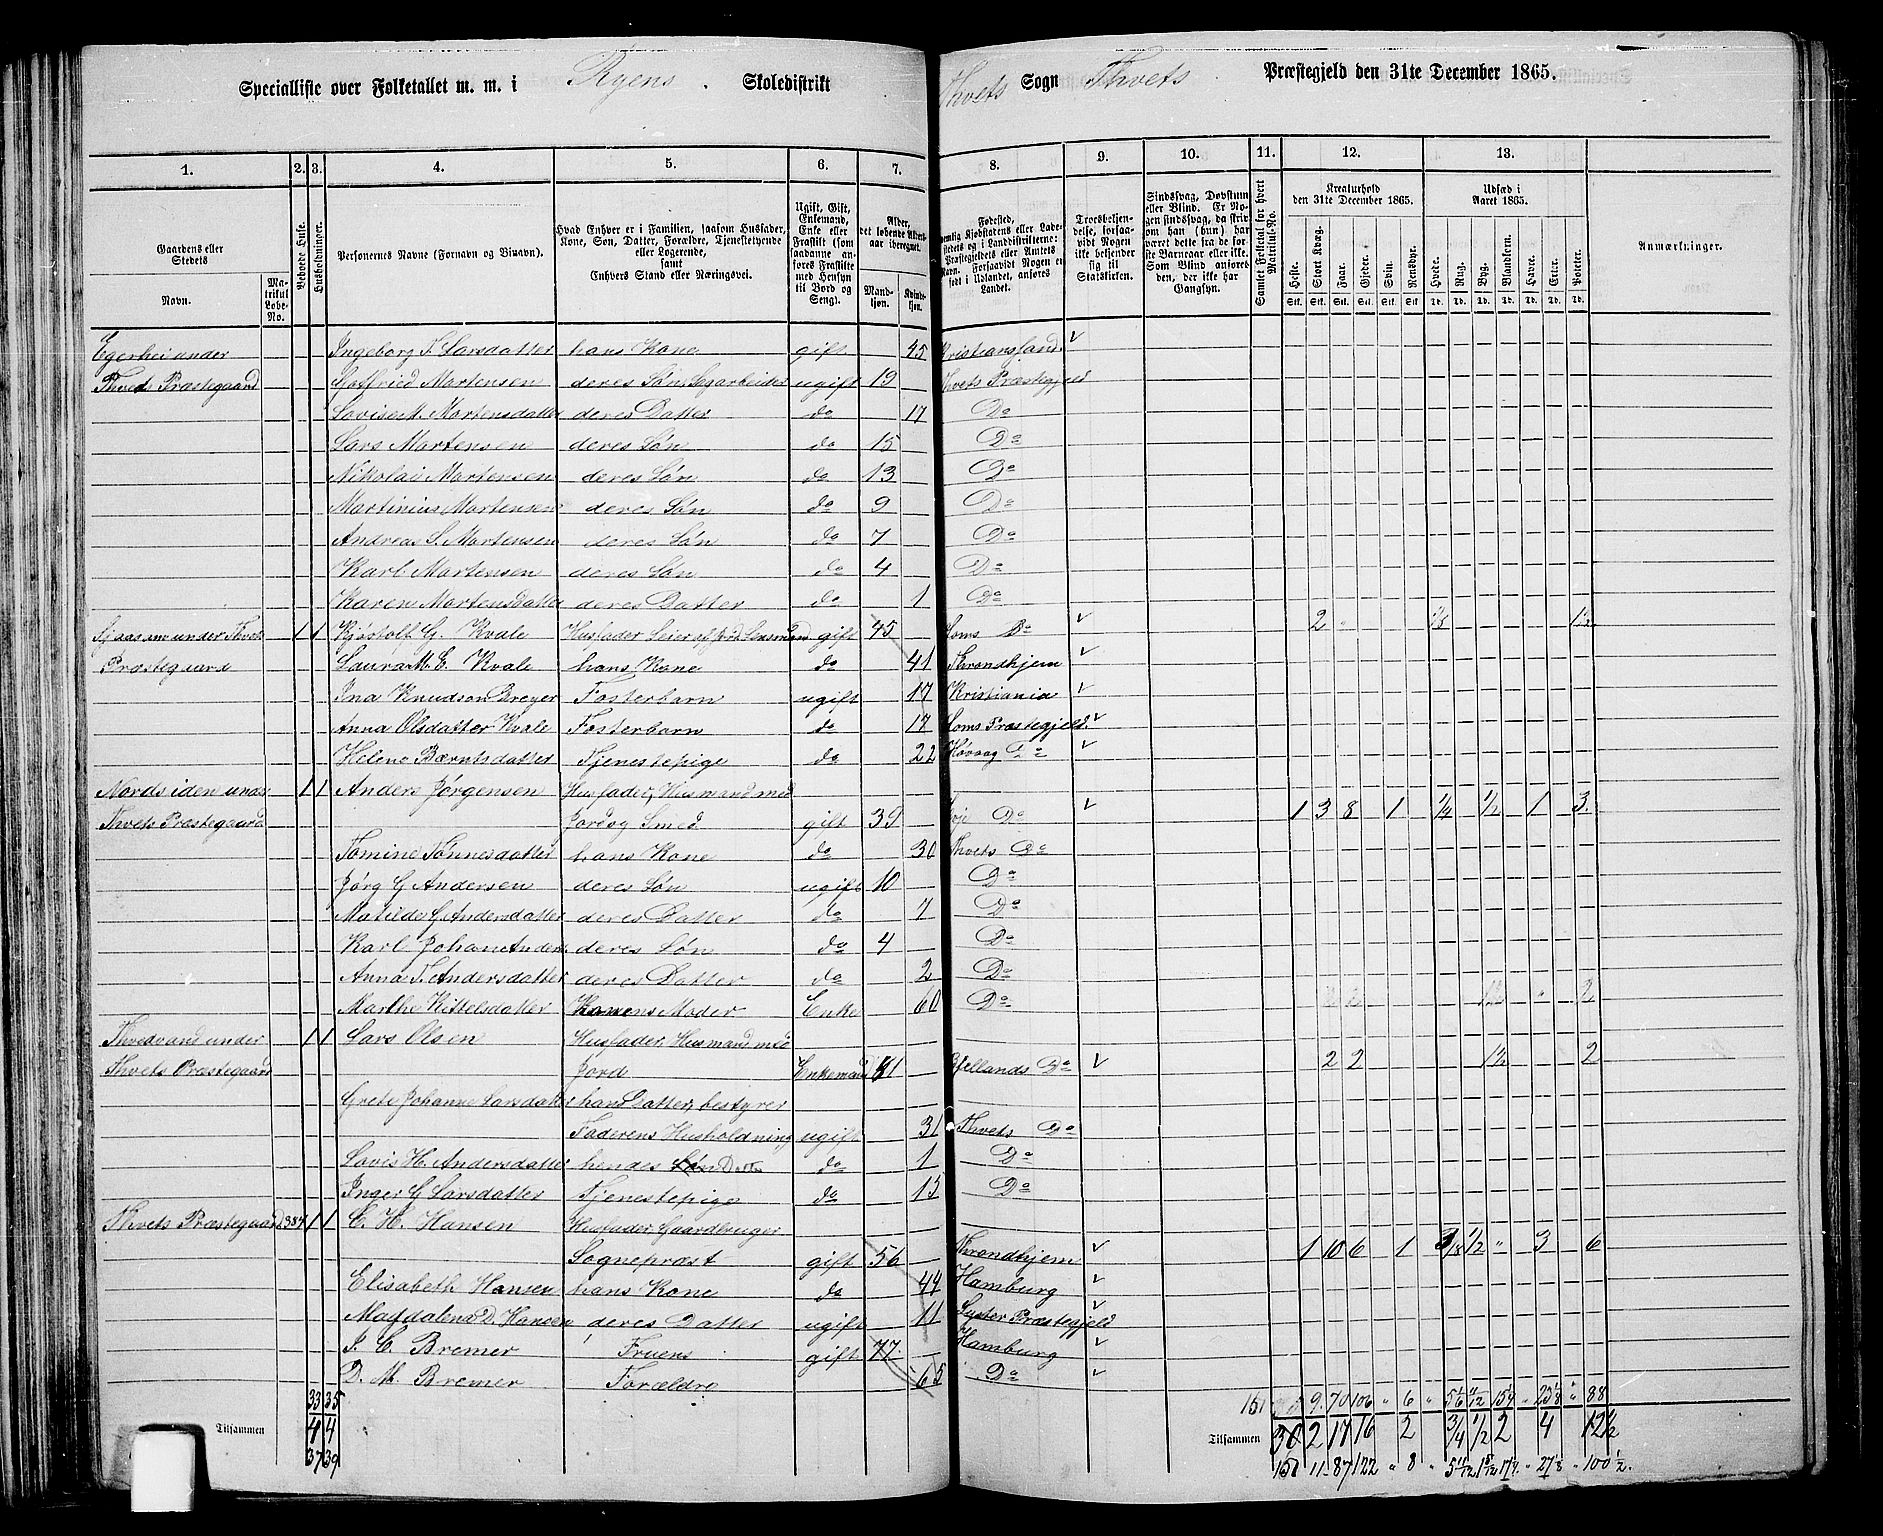 Specialliste over Folketallet m. m. i Ryens Skoledistrikt Thvets Sogn Thvets Præstegjeld den 31te December 1865.
1. 2. 3. 4. 5. 6. 7. 8. 9. 10. 11. 12. 13.
Gaardens eller Stedets
Navn. Matrikul Løbe-No.
Beboede Huse. Husholdninger.
Personernes Navne (Fornavn og Binavn).
Hvad Enhver er i Familien, saasom Husfader, Kone, Søn, Datter, Forældre, Tjenestetyende eller Logerende, samt Enhvers Stand eller Næringsvei.
Ugift, Gift, Enkemand, Enke eller Fraskilt (som saadanne anføres Fraskilte med Hensyn til Bord og Seng).
Alder, det løbende Alders-aar iberegnet. Mandkjøn. Kvindekjøn.
Troesbekjendelse, forsaavidt Nogen ikke bekjender sig til Statskirken.
Sindssvag, Døvstum eller Blind. Er Nogen sindssvag, da skrives om han (hun) har været dette fra Barneaar eller ikke. Som Blind anføres den, der ikke har Gangsyn.
Samlet Folketal for hvert Matrikul-No.
Kreaturhold den 31te December 1865.
Heste. Stort Kvæg. Faar. Gjeder. Svin. Rensdyr.
Udsæd i Aaret 1865.
Hvede. Rug. Byg. Blandkorn. Havre. Erter. Poteter.
Anmærkninger.
Egerhei under Ingeborg T. Larsdatter hans Kone gift 45 Kristiansand
Thvets Præstegaard Gotfried Mortensen deres Søn, ugift 19 Thvets Præstegjeld
Lovise M. Mortensdatter deres Datter do 17 Do
Lars Mortensen deres Søn do 15 Do
Nikolai Mortensen deres Søn do 13 Do
Martinius Mortensen deres Søn do 9 Do
Andreas S. Mortensen deres Søn do 7 Do
Karl Mortensen deres Søn do 4 Do
Karen Mortensdatter deres Datter do 1 Do
under Thvets 1 1 G. Kvale Husfader Leier af Jord, Lensmand gift 45 Do 2 "
Præstegaard Laura M. E. Kvale hans Kone do 41 Throndhjem
Ina Knudson Breyer Fosterbarn ugift 17 Kristiania
Anna Olsdatter Kvale Fosterbarn do 17 Præstegjeld
Helene Berntsdatter Tjenestepige do 22 Høvaag Do
Nordsiden under 1 1 Anders Jørgensen Husfader, Husmand med
Thvets Præstegaard Jord og Smed gift 39 Do 1 3 8 1 1/4 1/2 1 3
Tomine Tønnesdatter hans Kone do 30 Thvets Do
Jørg G Andersen deres Søn ugift 10 Do
Matilde G. Andersdatter deres Datter do 7 Do
Karl Johan Anders. deres Søn do 4 Do
Anna T. Andersdatter deres Datter do 2 Do
Marthe Kittelsdatter Konens Moder Enke 60 Do
Thvedvand under 1 1 Lars Olsen Husfader, Husmand med
Thvets Præstegaard Jord Enkemand 61 Bjellands Do 2 2 1/2 2
Grete Johanne Larsdatter hans Datter, bestyrer
Faderens Husholdning, ugift 31 Thvets Do
Lovis H. Andersdatter hendes Datter do 1 Do
Inger G Larsdatter Tjenestepige do 15 Do
Thvets Præstegaard 384 1 1 C. H. Hansen Husfader, Gaardbruger
Sognepræst gift 56 Throndhjem 1 10 6 1 1/2 " 3 6
Elisabeth Hansen hans Kone do 44 Hamburg
Magdalena D. Hansen deres Datter ugift 11 Lyster Præstegjeld
J. C. Bremer Fruens gift 77 Hamburg
D. M. Bremer Forældre 65 Do
33 35 151 9 70 106 " 6 " 88
Tilsammen 4 4 Tilsammen 30 2 17 16 2 3/4 1/2 2 4 12 1/2
37 39 11 87 122 " 8 " 100 1/2.